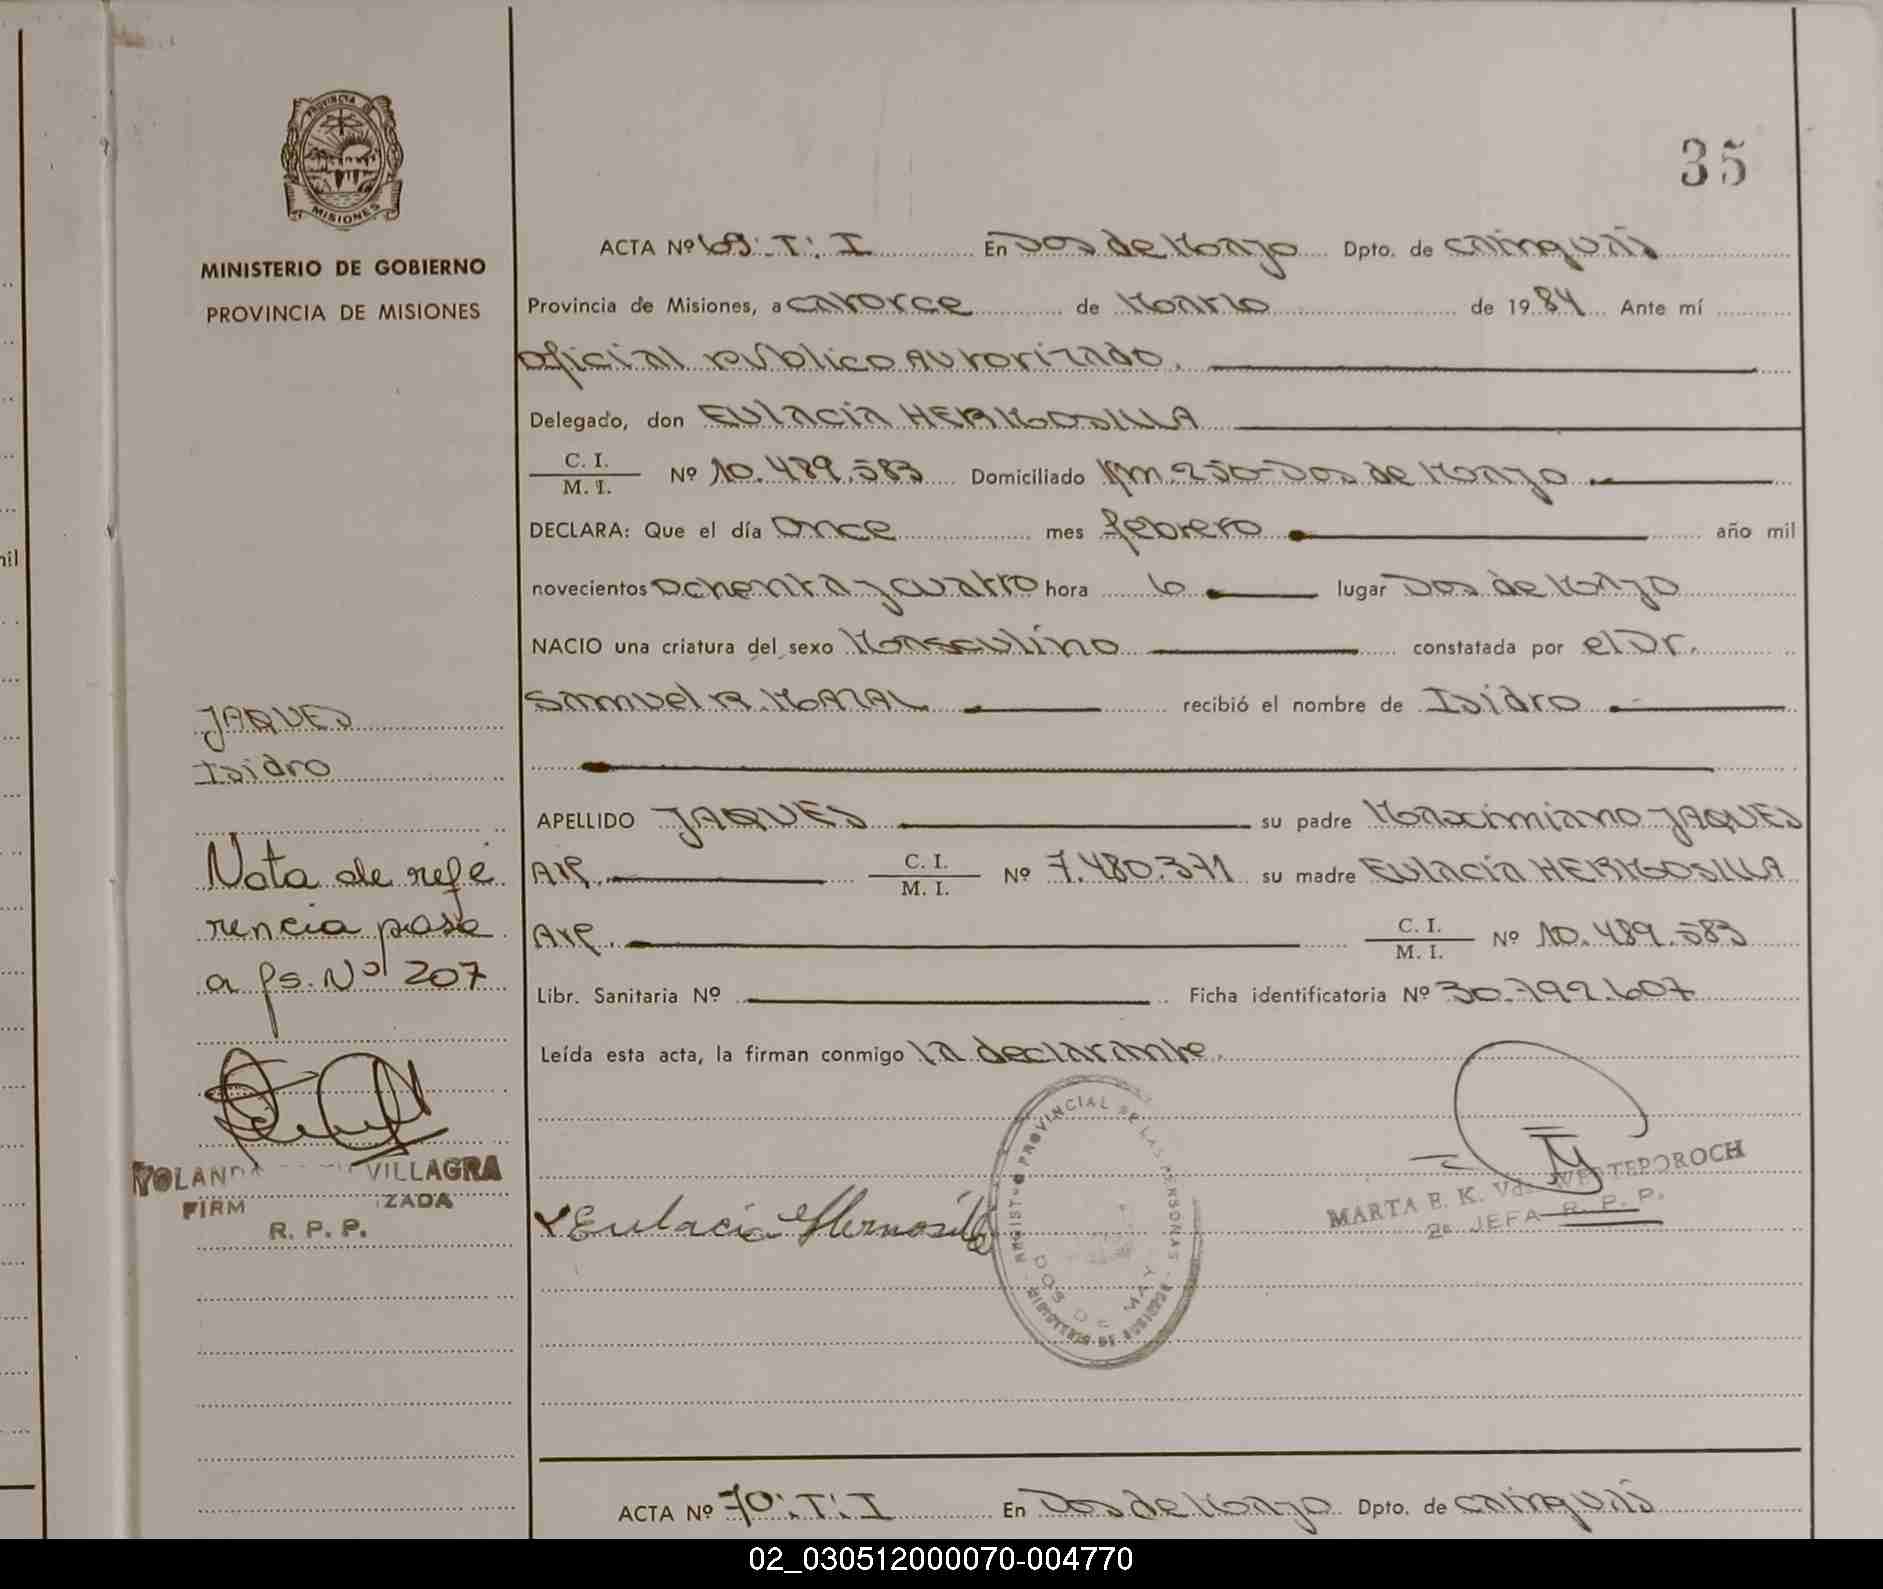 35
PROVINCIA DE
MISIONES
MINISTERIO DE GOBIERNO
PROVINCIA DE MISIONES
ACTA Nº 69: T: I En Dos de Mayo Dpto. de cainguás
Provincia de Misiones, a catorce de Marzo de 1984 Ante mí
oficial público autorizado.
Delegado, don Eulacia HERMOSILLA
C. I.
M. I. Nº 10.489.583 Domiciliado Km. 250-Dos de Mayo
DECLARA: Que el día once mes febrero año mil
novecientos ochenta y cuatro hora 6 lugar Dos de Mayo
NACIO una criatura del sexo Masculino constatada por el Dr.
Samuel R. MAZAL recibió el nombre de Isidro
JAQUES
Isidro
APELLIDO JAQUES su padre Maximiano JAQUES
Arg. C. I.
M. I. Nº 7.480.371 su madre Eulacia HERMOSILLA
Arg. C. I.
M. I. Nº 10.489.583
Libr. Sanitaria Nº Ficha identificatoria Nº 30.792.607
Leída esta acta, la firman conmigo la declarante.
Nota de refe
rencia pasa
a fs. Nº 207
VILLAGRA
FIRM ZADA
R. P. P.
Eulacia Hermosilla
REGISTRO PROVINCIAL DE LAS PERSONAS
DOS DE MAY
MINISTERIO DE GOBIERNO
MARTA E. K. Vda.
2a JEFA R. P. P.
ACTA Nº 70: T: I En Dos de Mayo Dpto. de cainguás
mil
02_030512000070-004770